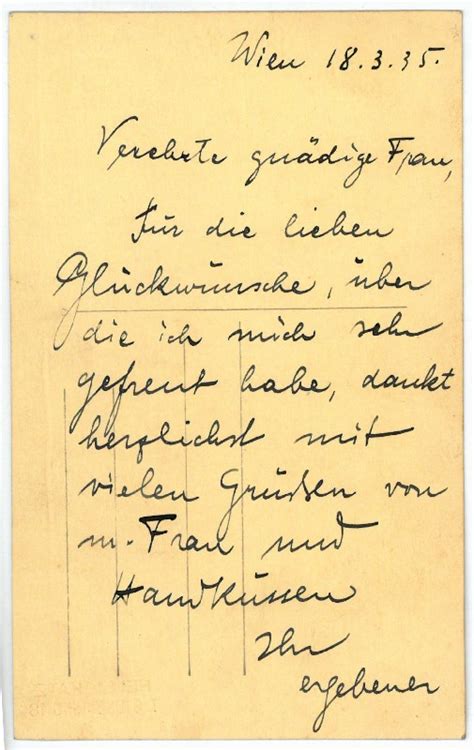 Wien 18.3.35.
Verehrte gnädige Frau,
für die lieben
Glückwünsche, über
die ich mich sehr
gefreut habe, dankt
herzlichst mit
vielen Grüßen von
m. Frau und
Handküssen
Ihr
ergebener